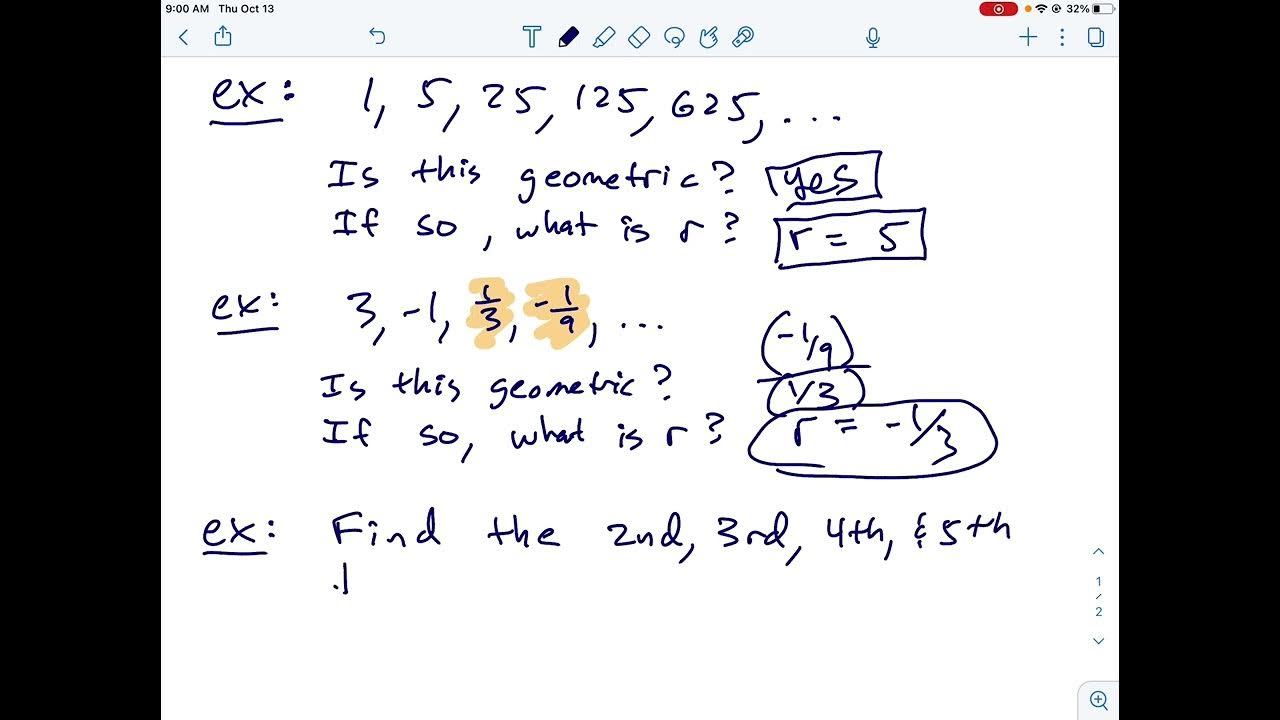 9:00 AM Thu Oct 13
32%
T
ex: 1, 5, 25, 125, 625, ...
Is this geometric? yes
If so, what is r? r = 5
ex: 3, -1, 1/3, -1/9, ...
(-1/9)
(1/3)
Is this geometric?
If so, what is r? r = -1/3
ex: Find the 2nd, 3rd, 4th, & 5th
1
/
2